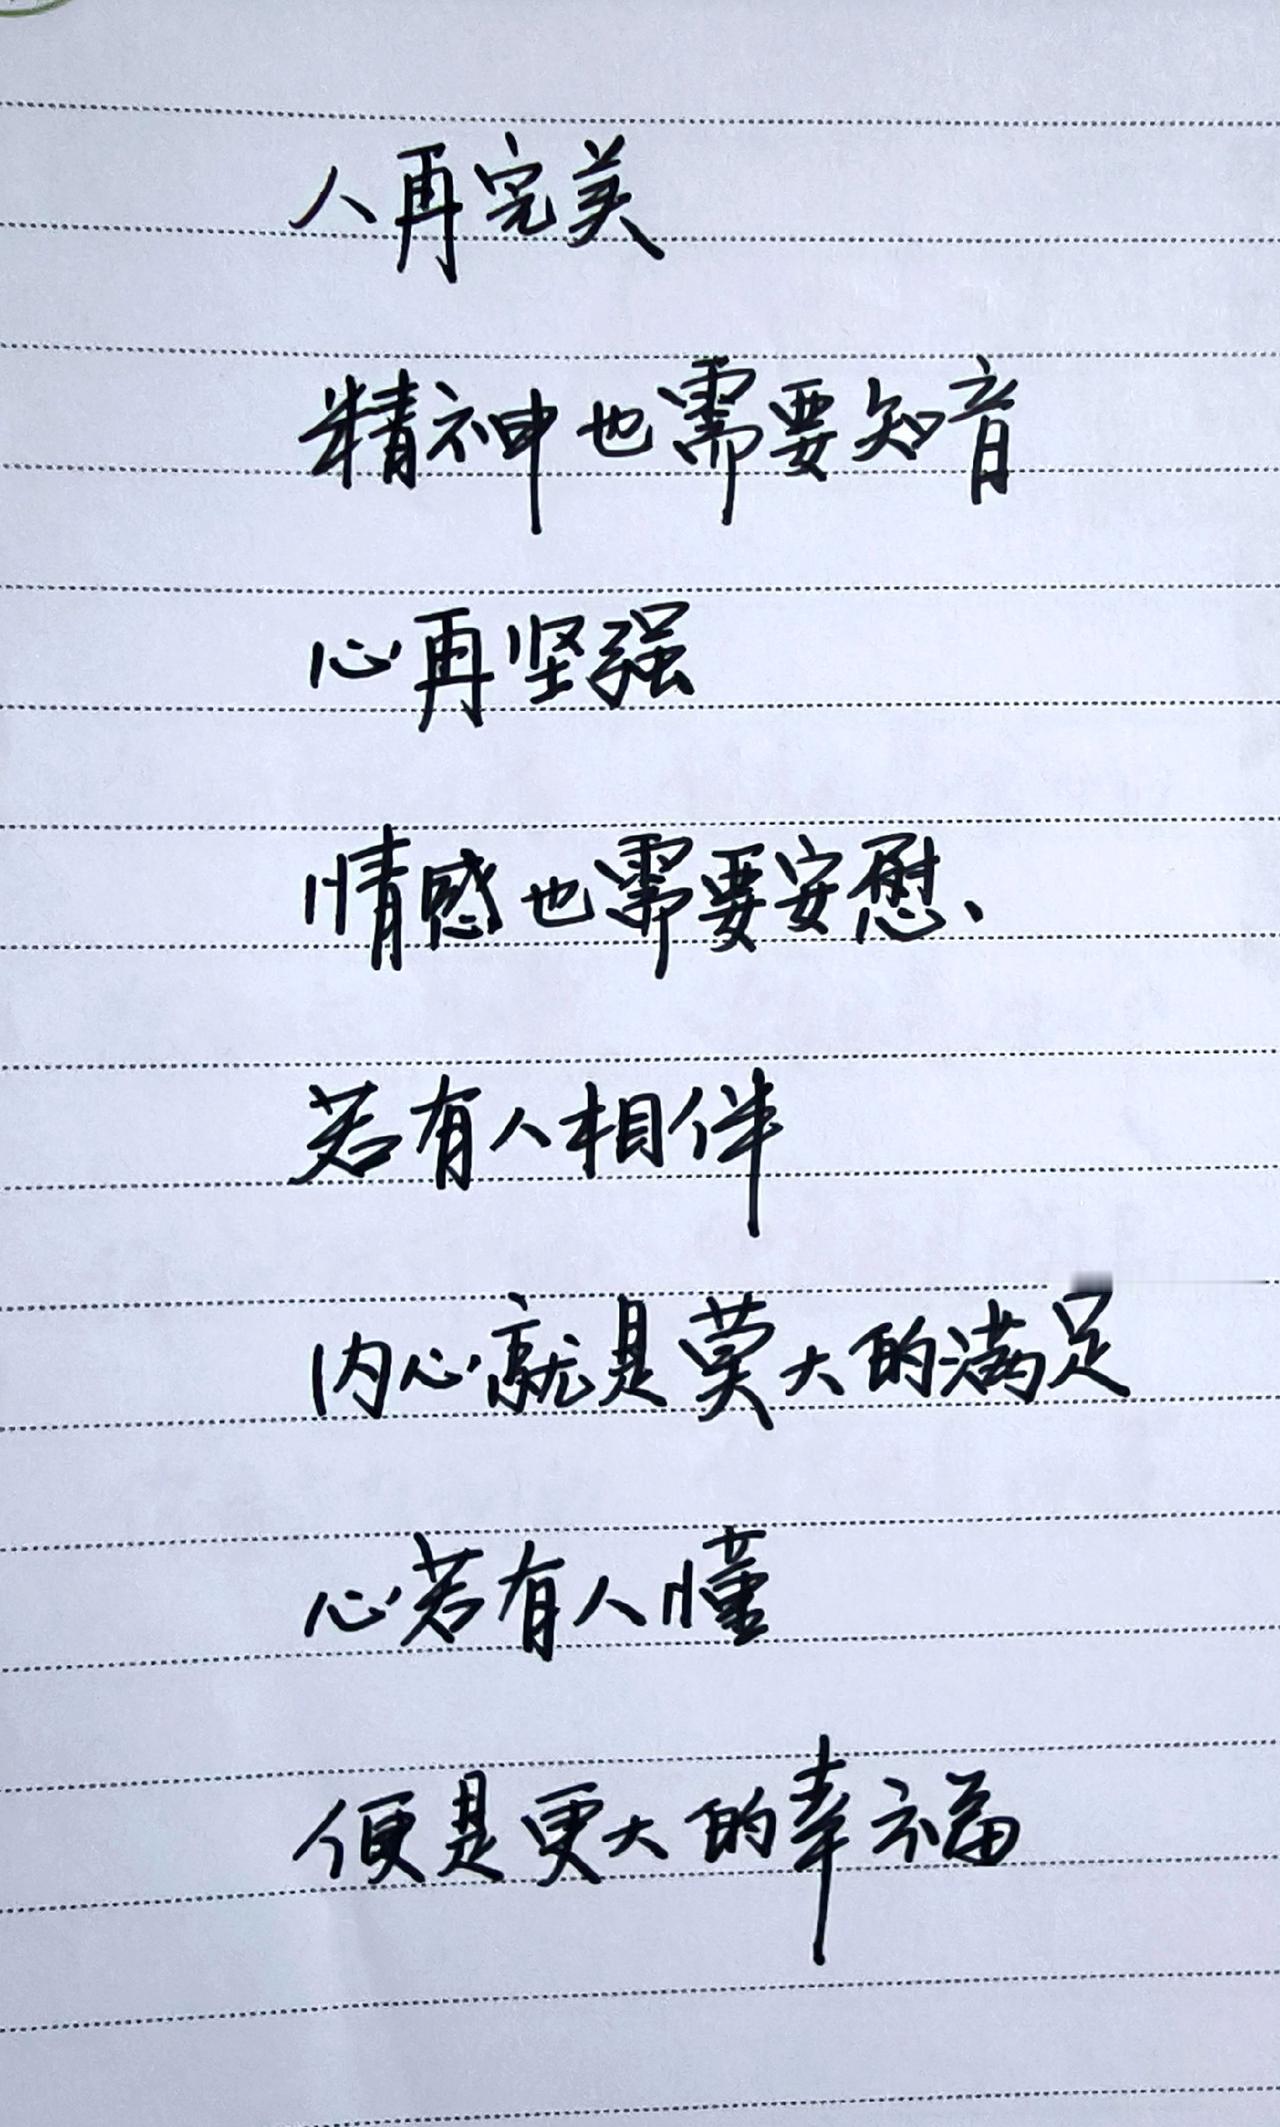 人再完美
精神也需要知音
心再坚强
情感也需要安慰、
若有人相伴
内心就是莫大的满足
心若有人懂
便是更大的幸福